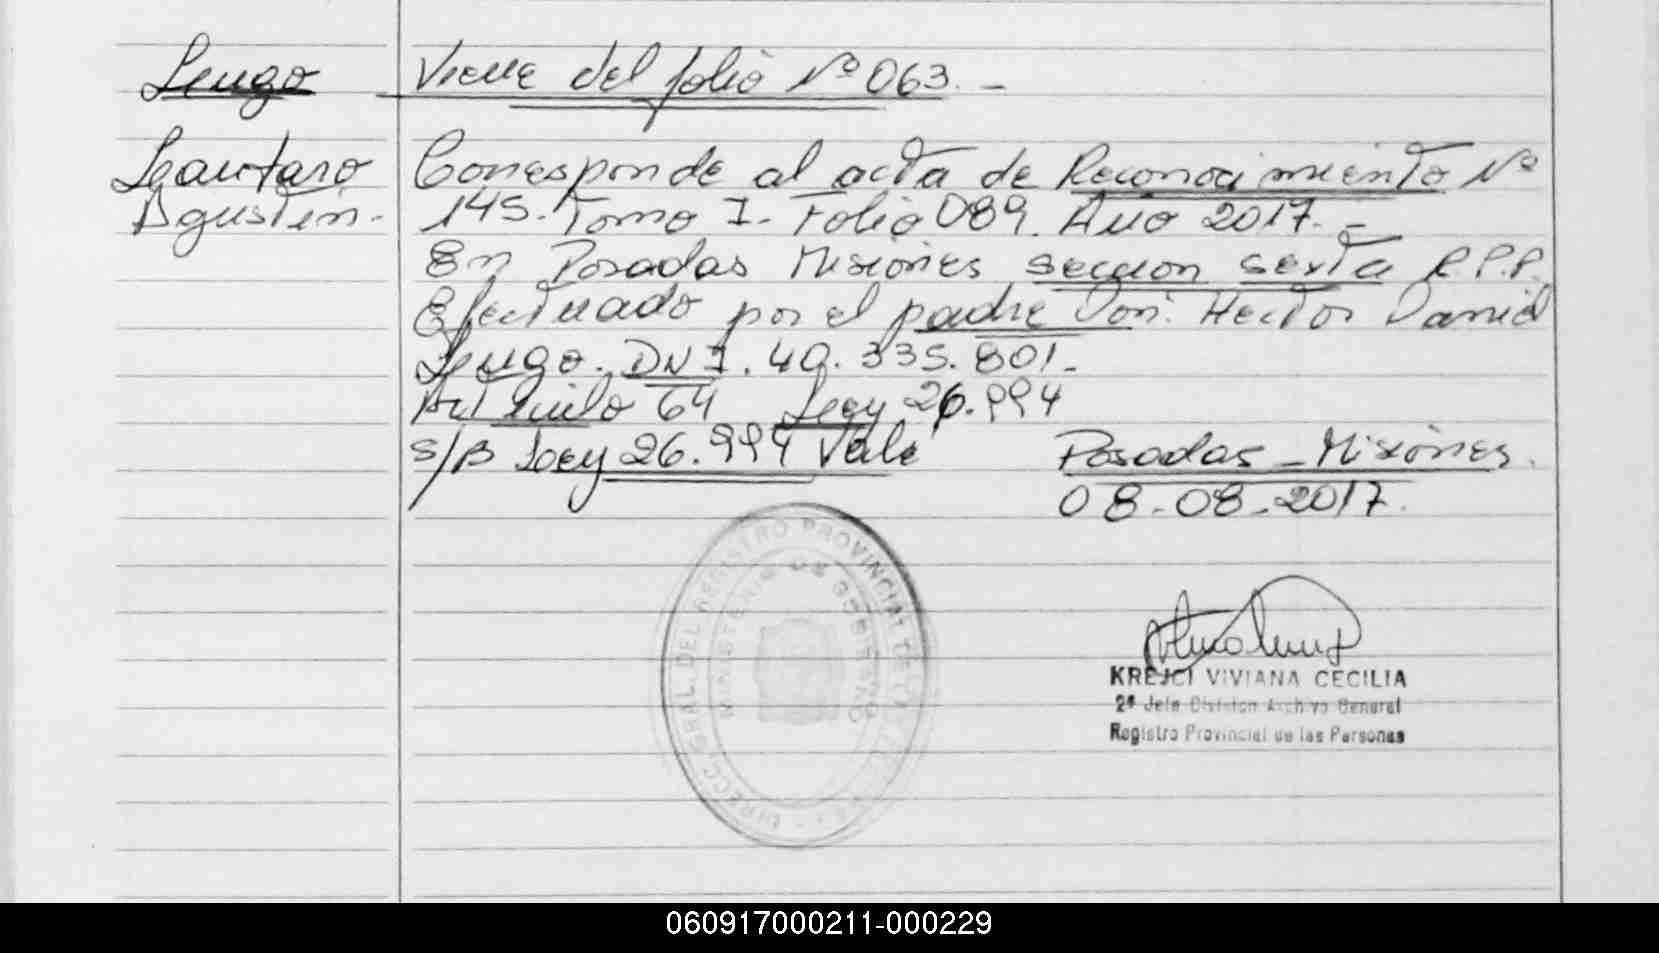 Lugo
Viene del folio Nº 063.-
Lautaro
Agustin.-
Corresponde al acta de Reconocimiento Nº
145. Tomo I. Folio 089. Año 2017.-
En Posadas Misiones sección sexta R.P.P.
Efectuado por el padre Don: Hector Daniel
Lugo. DNI. 40.335.801.-
Artículo 64 Ley 26.994
S/B Ley 26.994 Vale
Posadas - Misiones.
08-08-2017.
DIRECC. GRAL. DEL REGISTRO PROVINCIAL DE LAS
MINISTERIO DE GOBIERNO
KREJCI VIVIANA CECILIA
2º Jefe Division Archivo General
Registro Provincial de las Personas
060917000211-000229